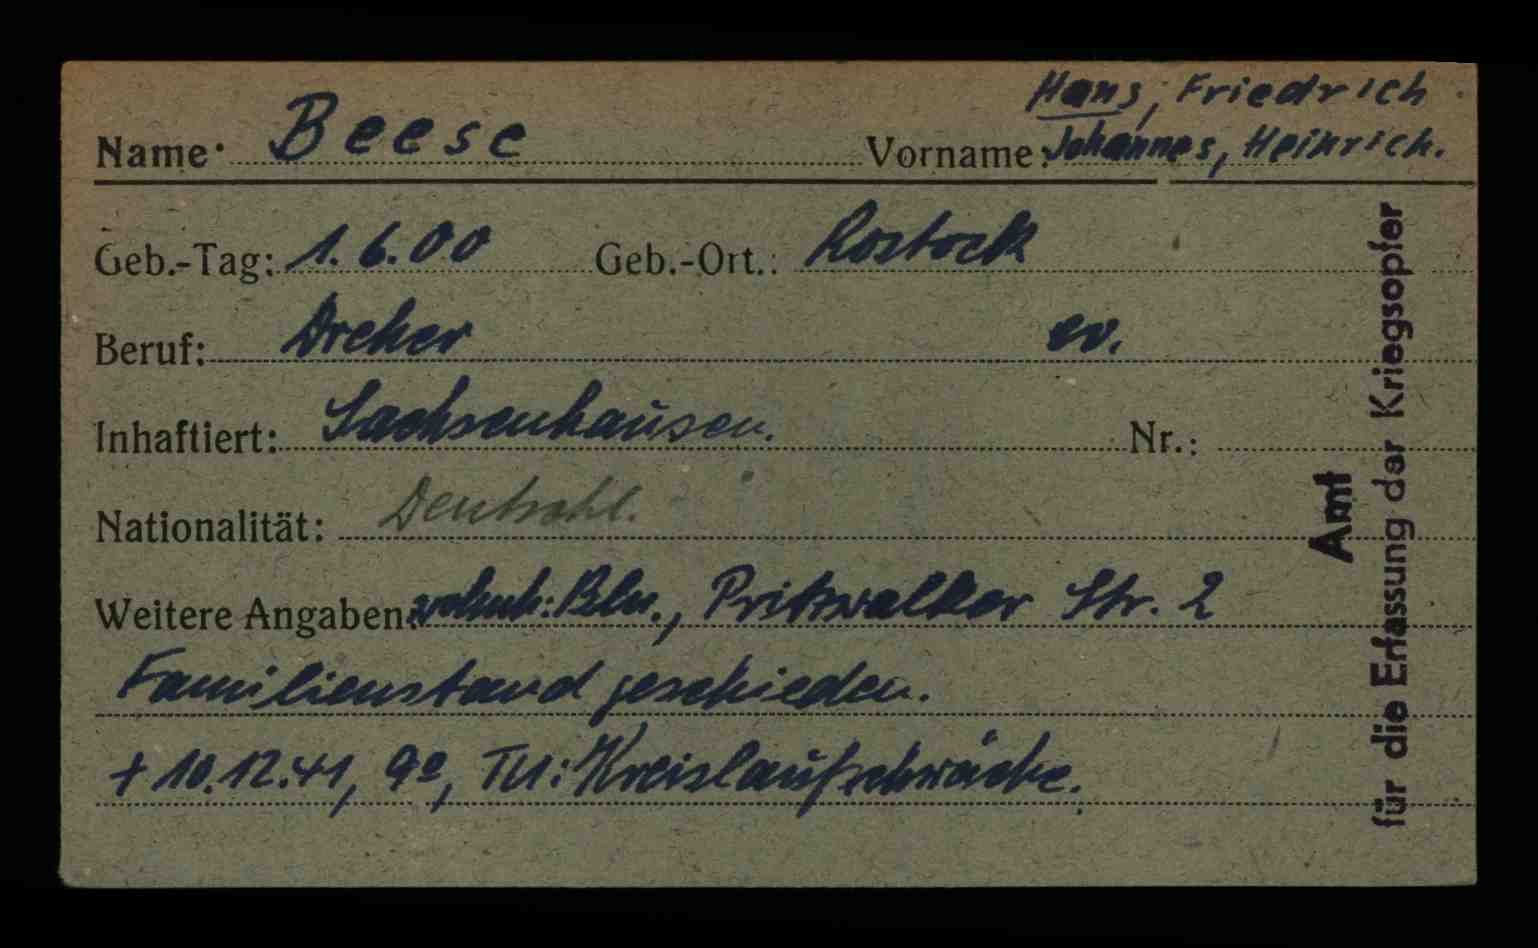 Hans, Friedrich
Name: Beese Vorname: Johannes, Heinrich.
Geb.-Tag: 1.6.00 Geb.-Ort.: Rostock
Beruf: Dreher ev.
Inhaftiert: Sachsenhausen. Nr.:
Nationalität: Deutschl.
Weitere Angaben: wohnh: Bln., Pritzwalker Str. 2
Familienstand geschieden.
+ 10.12.41, 9º, TU: Kreislaufschwäche.
Amt
für die Erfassung der Kriegsopfer